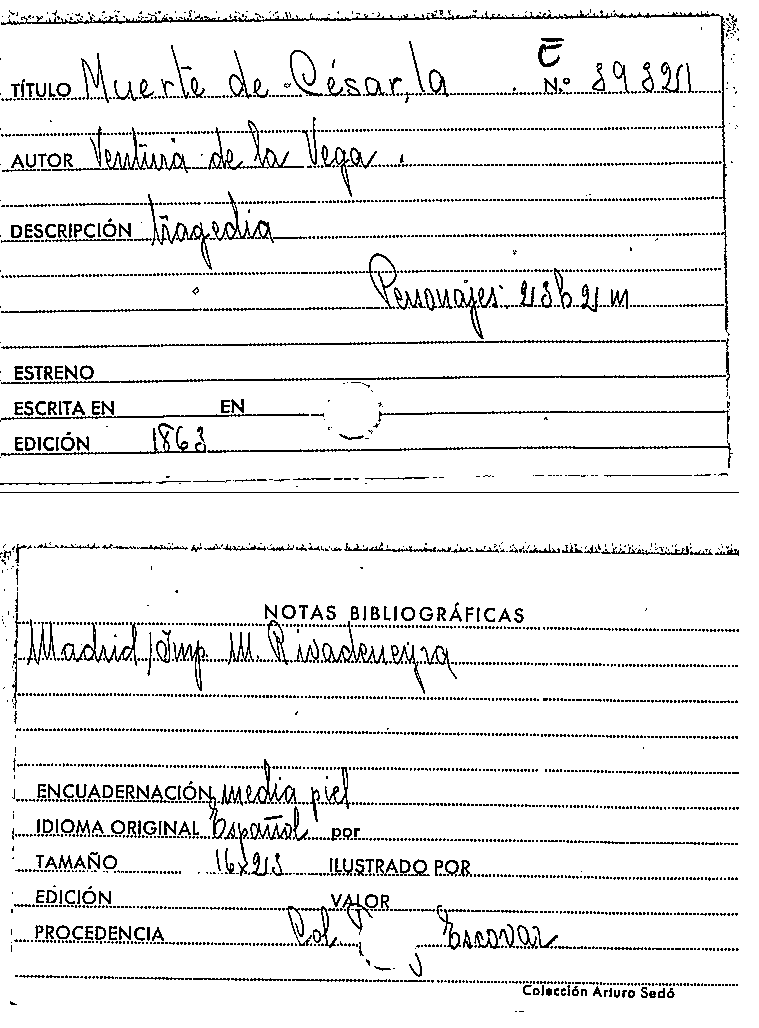 C̄
TÍTULO Muerte de César, la N.º
AUTOR Ventura de la Vega.
DESCRIPCIÓN tragedia
Personajes: 23 h 2 m
ESTRENO
ESCRITA EN EN
EDICIÓN 1863
NOTAS BIBLIOGRÁFICAS
Madrid / Imp. M. Rivadeneyra
ENCUADERNACIÓN media piel
IDIOMA ORIGINAL Español por
TAMAÑO 16x23 ILUSTRADO POR
EDICIÓN VALOR
PROCEDENCIA Col. Escovar
Colección Arturo Sedó